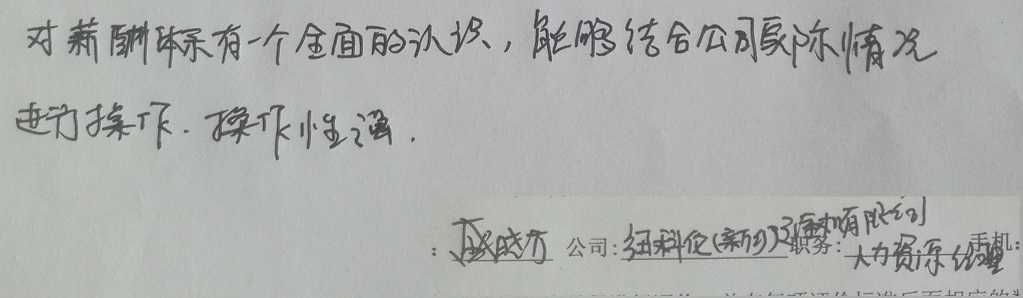 对薪酬体系有一个全面的认识，能够结合公司实际情况
进行操作．操作性强．
：盛晓方 公司：纽科伦（新乡）起重机有限公司 职务：人力资源经理 手机：